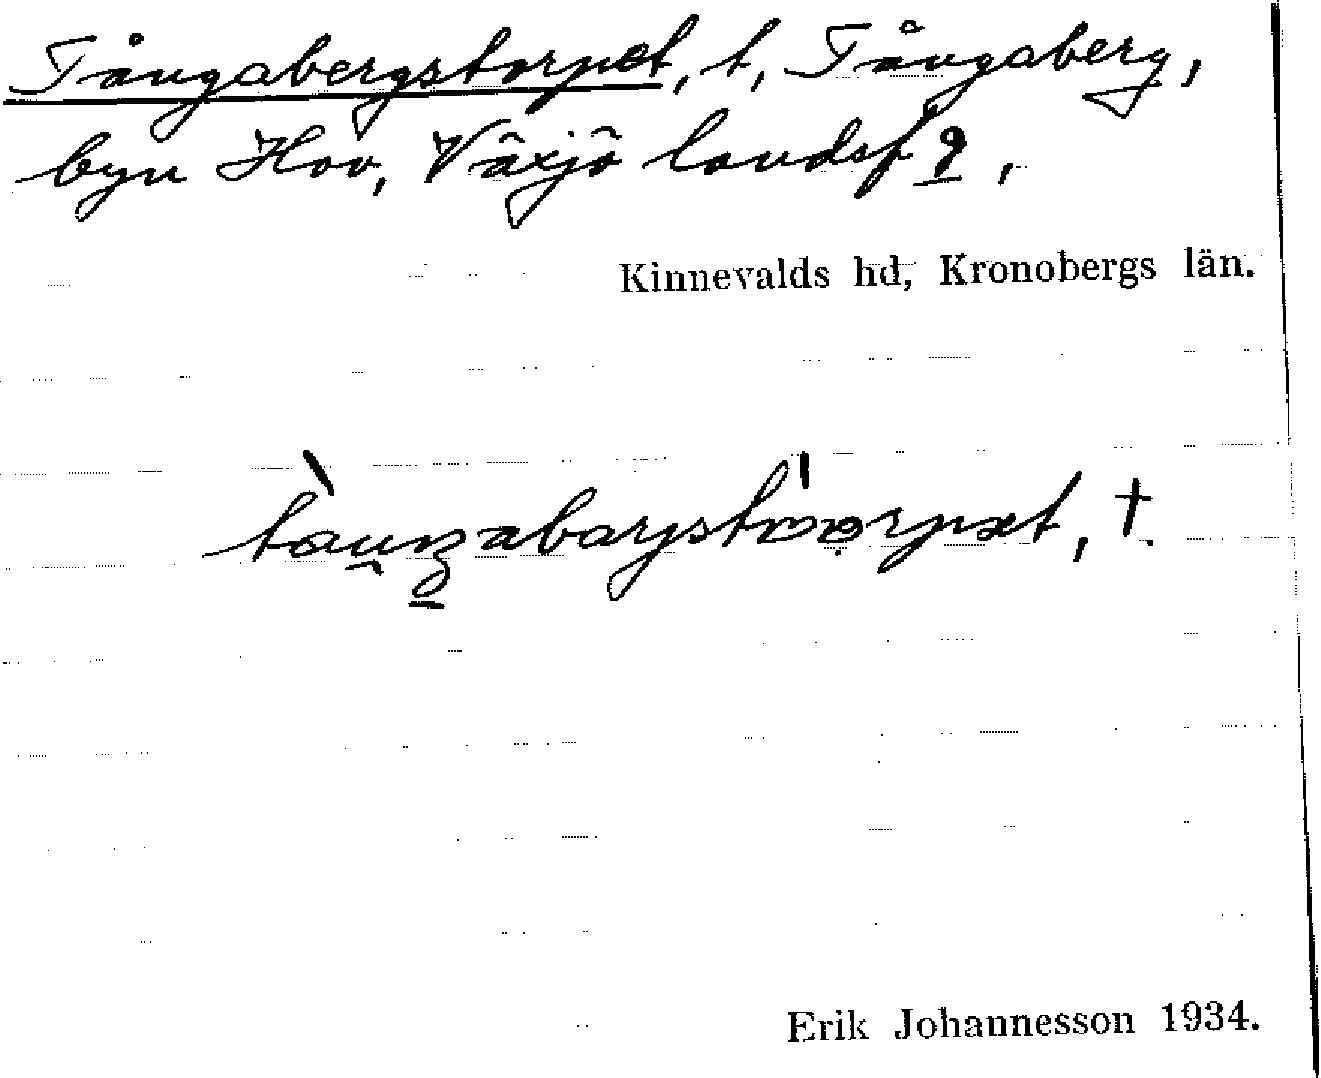 Tångabergstorpet, t, Tångaberg,
byn Hov, Växjö landsf g,
Kinnevalds hd, Kronobergs län.
†.
Erik Johannesson 1934.